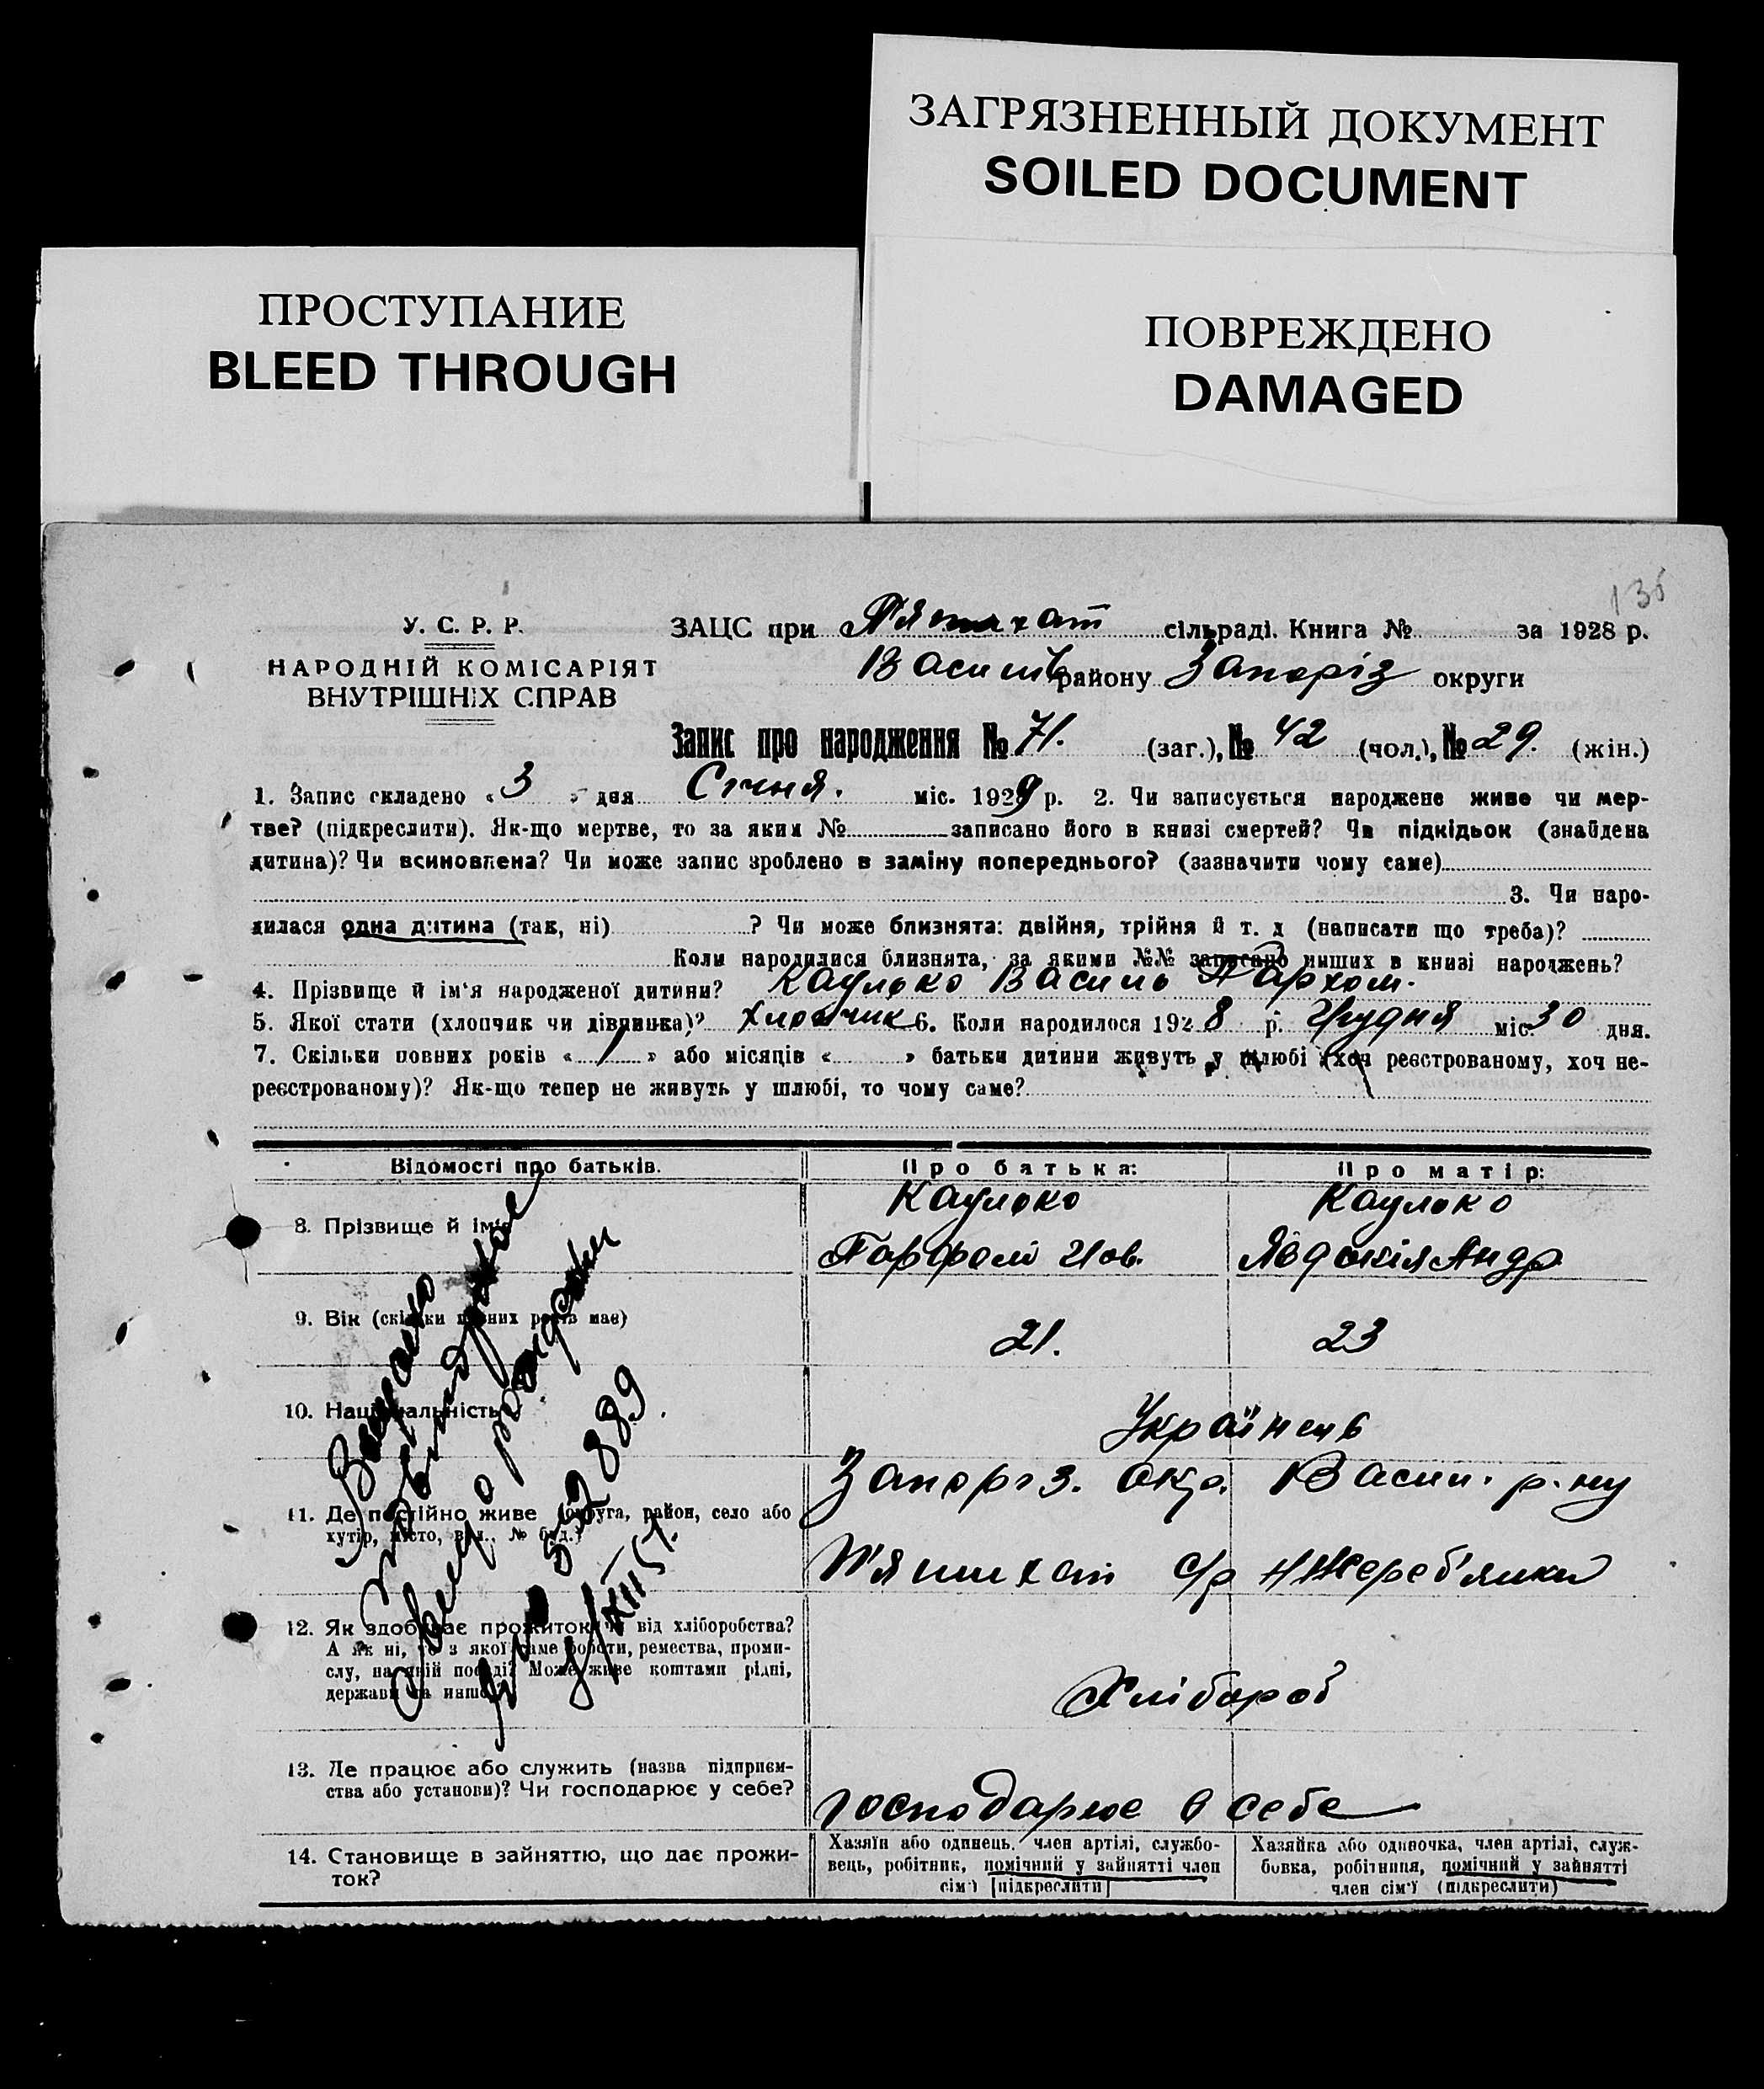 ЗАГРЯЗНЕННЫЙ ДОКУМЕНТ
SOILED DOCUMENT
ПРОСТУПАНИЕ
BLEED THROUGH
ПОВРЕЖДЕНО
DAMAGED
135
У. С. Р. Р.
НАРОДНІЙ КОМІСАРІЯТ
ВНУТРІШНІХ СПРАВ
ЗАЦС при П'ятихат сільраді. Книга № за 1928 р.
Васил району Запоріз округи
Запис про народження № 71. (заг.), № 42 (чол.), № 29. (жін.)
1. Запис складено « 3 » дня Січня. міс. 1929 р. 2. Чи записується народжене живе чи мер-
тве? (підкреслити). Як-що мертве, то за яким № записано його в книзі смертей? Чи підкідьок (знайдена
дитина)? Чи всиновлена? Чи може запис зроблено в заміну попереднього? (зазначити чому саме)
3. Чи наро-
дилася одна дитина (так, ні) ? Чи може близнята: двійня, трійня й т. д (написати що треба)?
Коли народилися близнята, за якими №№ записано инших в книзі народжень?
4. Прізвище й ім'я народженої дитини? Каулоко Василь Пархом.
5. Якої стати (хлопчик чи дівчинка)? хлопчик 6. Коли народилося 1928 р. Грудня міс 30 дня.
7. Скільки повних років « 1 » або місяців « » батьки дитини живуть у шлюбі (хоч реєстрованому, хоч не-
реєстрованому)? Як-що тепер не живуть у шлюбі, то чому саме?
Відомості про батьків.
Про батька:
Про матір:
8. Прізвище й ім'я
Каулоко
Каулоко
Парфом Иов.
Явдокія Андр.
9. Вік (скільки повних років має)
21.
23
10. Національність
Українець
11. Де постійно живе (округа, район, село або
хутір, місто, вул., № буд.)
Запоріз. окр. Васил. р-ну
П'ятихат с/р Н Жереб'янки
12. Як здобуває прожиток: чи від хліборобства?
А як ні, то з якої саме роботи, ремества, проми-
слу, на якій посаді? Може живе коштами рідні,
держави та инше
Хлібороб
13. Де працює або служить (назва підприєм-
ства або установи)? Чи господарює у себе?
господарює в себе
14. Становище в зайняттю, що дає прожи-
ток?
Хазяїн або одинець, член артілі, службо-
вець, робітник, помічний у зайнятті член
сім'ї [підкреслити]
Хазяйка або одиночка, член артілі, служ-
бовка, робітниця, помічний у зайнятті
член сім'ї (підкреслити)
Выдано
повторное
Свид о рождении
532889